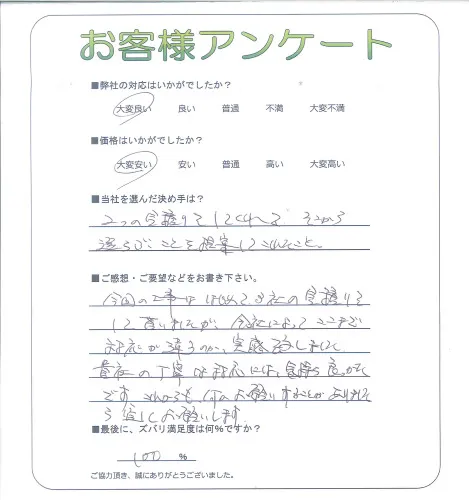 お客様アンケート
■弊社の対応はいかがでしたか?
大変良い 良い 普通 不満 大変不満
■価格はいかがでしたか?
大変安い 安い 普通 高い 大変高い
■当社を選んだ決め手は?
2つの見積りをしてくれて そこから
選らぶことを提案してくれたこと。
■ご感想・ご要望などをお書き下さい。
今回の工事は はじめて3社の見積りを
して貰いましたが、会社によってここまで
対応が違うのか、実感致しまして
貴社の丁寧な対応には、気持ち良かった
です これからも、何かお願いすることがありまし
宜しくお願いします
■最後に、ズバリ満足度は何%ですか?
100 %
ご協力頂き、誠にありがとうございました。